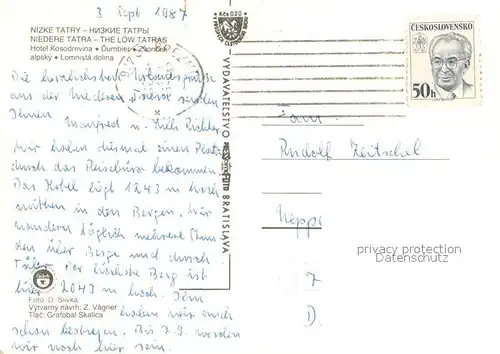 3. Sept. 1987
NÍZKE TATRY – НИЗКИЕ ТАТРЫ
NIEDERE TATRA – THE LOW TATRAS
Hotel Kosodrevina • Ďumbier • Zvonček
alpský • Lomnistá dolina
Kčs 0,20
ČESKOSLOVENSKO
50h
VYDAVATEĽSTVO
BRATISLAVA
Die herzlichsten Urlaubsgrüße
aus der Niederen Tatra senden
Ihnen Manfred u. Richter
Wir haben diesmal einen Platz
durch das Reisebüro bekommen.
Das Hotel liegt 1243 m hoch
mitten in den Bergen. Wir
wandern täglich mehrere Stun
den über Berge und durch
Täler. Der höchste Berg ist
hier 2043 m hoch. Ihn
haben wir auch
schon bestiegen. Bis 7.9. werden
wir noch hier sein.
Foto: D. Slivka
Výtvarný návrh: Z. Vágner
Tlač: Grafobal Skalica
Fam.
Rudolf
7
D.
privacy protection
VEREDA COMM